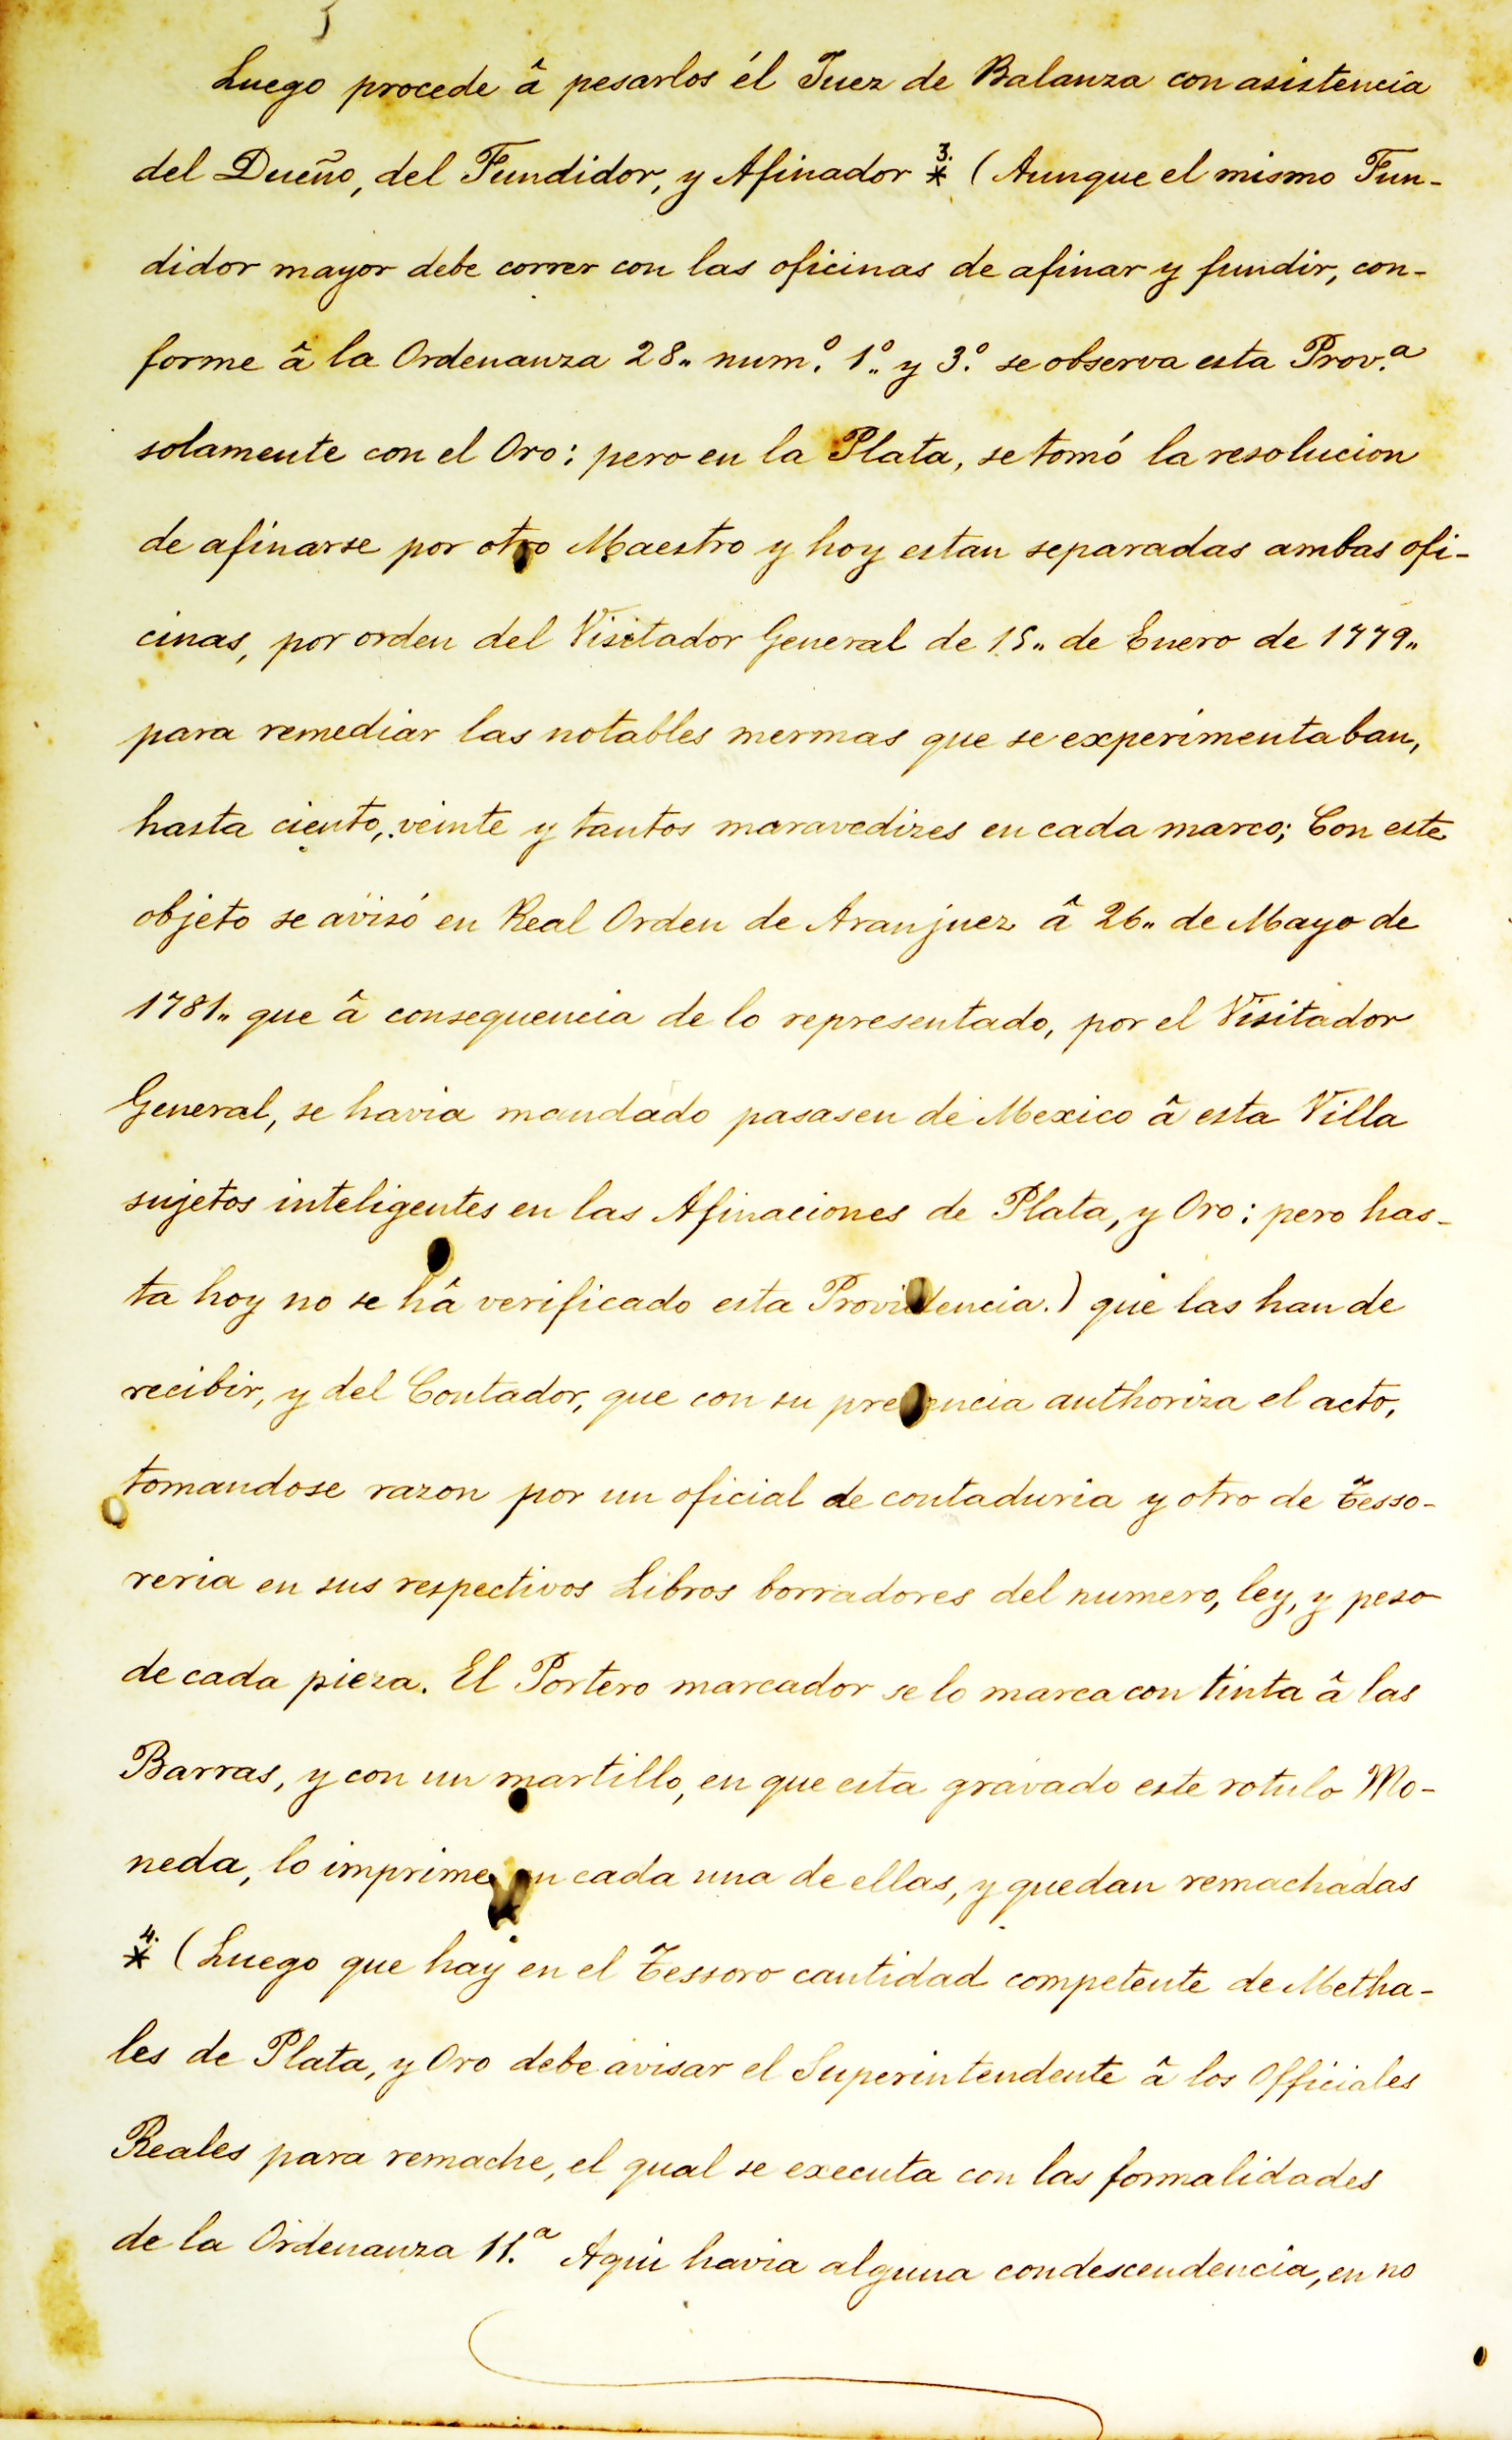 Luego procede â pesarlos él Juez de Balanza con asistencia
del Dueño, del Fundidor, y Afinador 3.* (Aunque el mismo Fun-
didor mayor debe correr con las oficinas de afinar y fundir, con-
forme â la Ordenanza 28„ num.º 1º„ y 3º. se observa esta Prov.ª
solamente con el Oro: pero en la Plata, se tomó la resolucion
de afinarse por otro Maestro y hoy estan separadas ambas ofi-
cinas, por orden del Visitador General de 15„ de Enero de 1779„
para remediar las notables mermas que se experimentaban,
hasta ciento, veinte y tantos maravedizes en cada marco; Con este
objeto se avisó en Real Orden de Aranjuez â 26„ de Mayo de
1781„ que â consequencia de lo representado, por el Visitador
General, se havia mandado pasasen de Mexico â esta Villa
sujetos inteligentes en las Afinaciones de Plata, y Oro: pero has-
ta hoy no se hâ verificado esta Providencia.) que las han de
recibir, y del Contador, que con su presencia authoriza el acto,
tomandose razon por un oficial de contaduria y otro de Tesso-
reria en sus respectivos Libros borradores del numero, ley, y peso
de cada pieza. El Portero marcador se lo marca con tinta â las
Barras, y con un martillo, en que esta gravado este rotulo Mo-
neda, lo imprime en cada una de ellas, y quedan remachadas
4.* (Luego que hay en el Tessoro cantidad competente de Metha-
les de Plata, y Oro debe avisar el Superintendente â los Officiales
Reales para remache, el qual se executa con las formalidades
de la Ordenanza 11.ª Aqui havia alguna condescendencia, en no